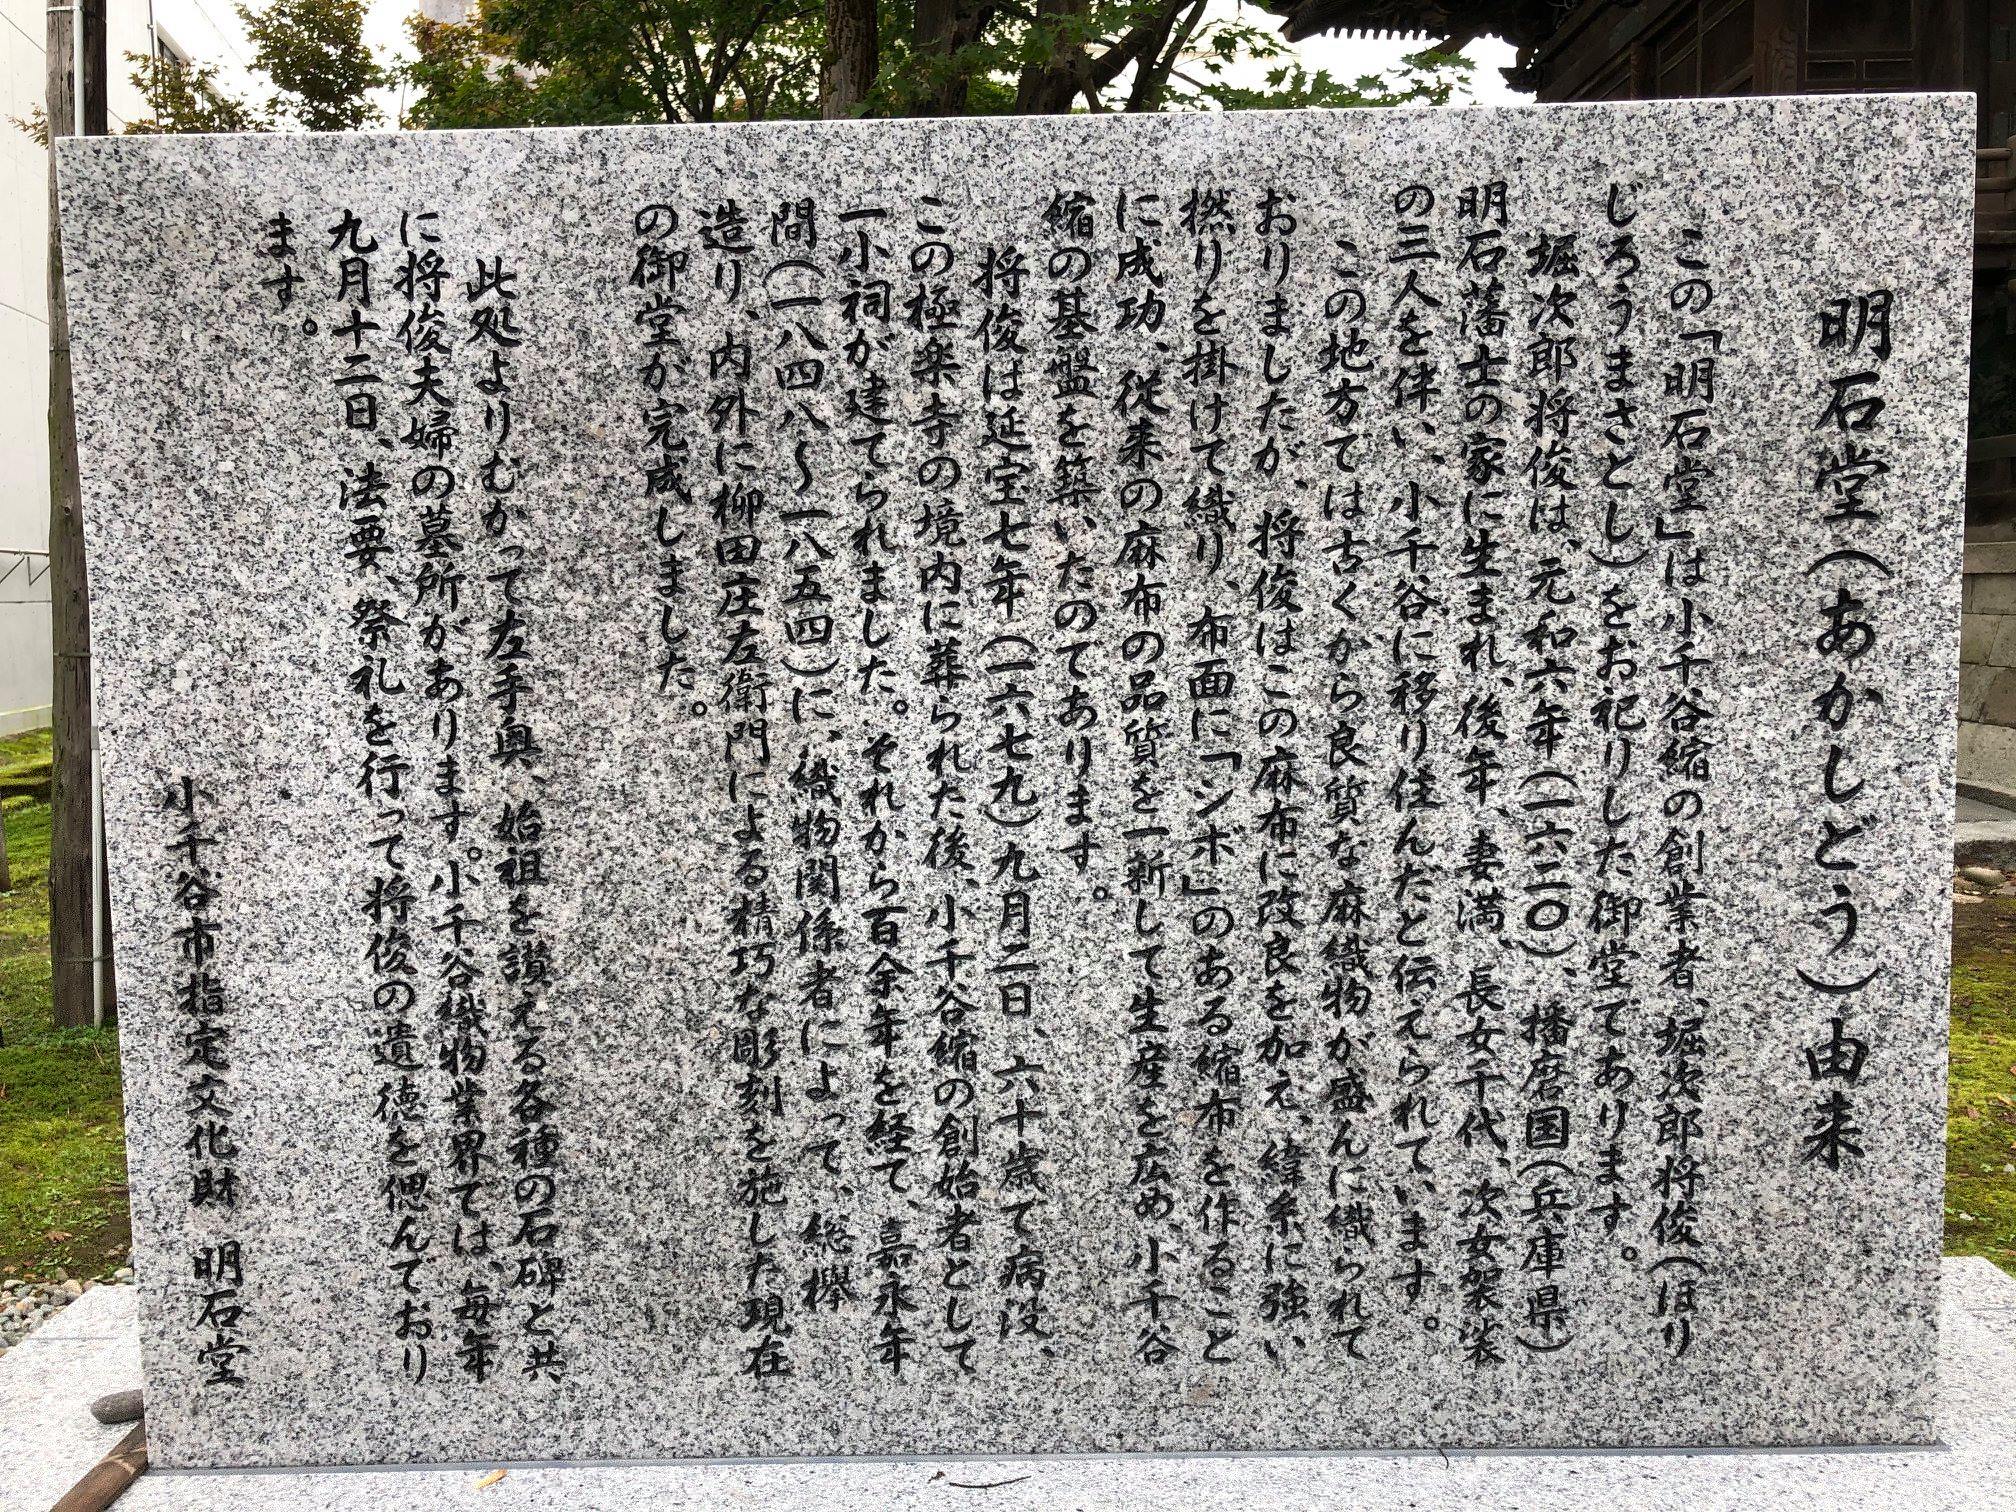 明石堂(あかしどう)由来
この「明石堂」は小千谷縮の創業者、堀次郎将俊(ほり
じろうまさとし)をお祀りした御堂であります。
堀次郎将俊は、元和六年(一六二〇)、播磨国(兵庫県)
明石藩士の家に生まれ、後年、妻満、長女千代、次女袈裟
の三人を伴い、小千谷に移り住んだと伝えられています。
この地方では古くから良質な麻織物が盛んに織られて
おりましたが、将俊はこの麻布に改良を加え、緯糸に強い
撚りを掛けて織り、布面に「シボ」のある縮布を作ること
に成功、従来の麻布の品質を一新して生産を広め、小千谷
縮の基盤を築いたのであります。
将俊は延宝七年(一六七九)九月二日、六十歳で病没、
この極楽寺の境内に葬られた後、小千谷縮の創始者として
一小祠が建てられました。それから百余年を経て、嘉永年
間(一八四八〜一八五四)に、織物関係者によって、総欅
造り、内外に柳田庄左衛門による精巧な彫刻を施した現在
の御堂が完成しました。
此処よりむかって左手奥、始祖を讃える各種の石碑と共
に将俊夫婦の墓所があります。小千谷織物業界では、毎年
九月十二日、法要、祭礼を行って将俊の遺徳を偲んでおり
ます。
小千谷市指定文化財 明石堂